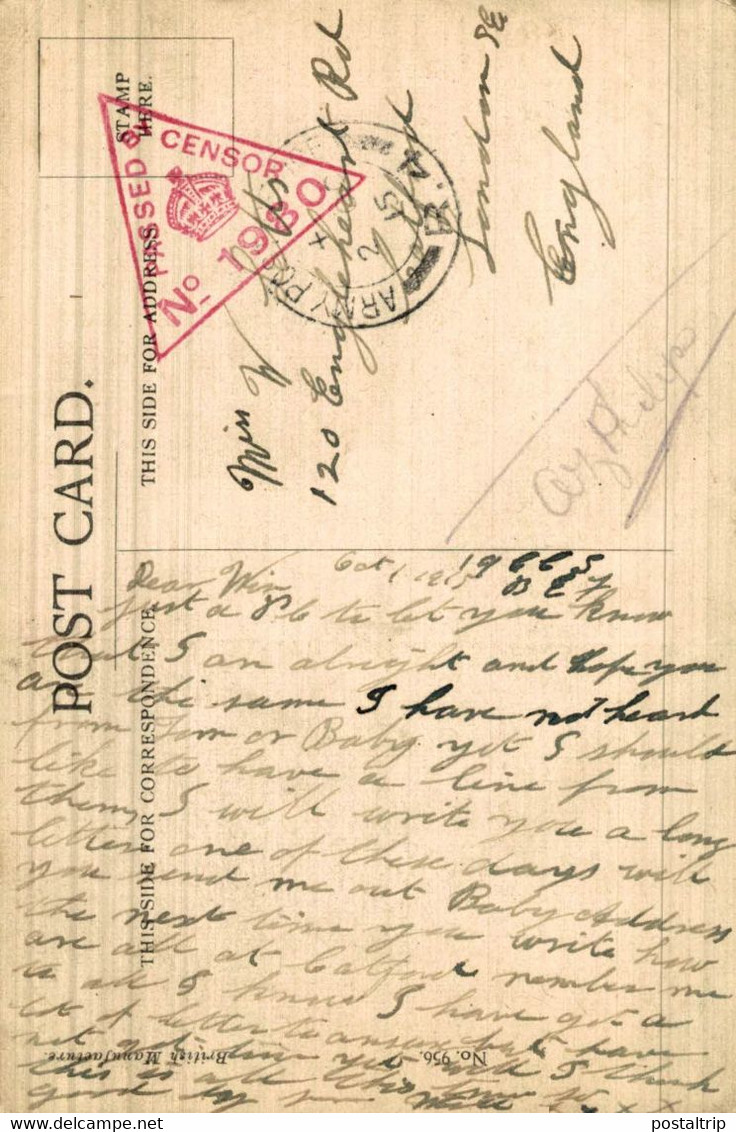 POST CARD.
STAMP
HERE.
THIS SIDE FOR ADDRESS.
THIS SIDE FOR CORRESPONDENCE.
PASSED BY
CENSOR
No 1980
ARMY POS
2
15
Miss W
120 Engleheart Rd
Catford
London SE
England
Dear Win Oct 1 1915
Just a P C to let you know
that I am alright and hope you
are the same I have not heard
from Tom or Baby yet I should
like to have a line from
them, I will write you a long
letter one of these days will
you send me out Baby Address
the next time you write how
are all at Catford remember me
to all I know I have got a
lot of letter to answer but have
not got time yet I think
this is all this time so
good by
British Manufacture.
No. 956.
postaltrip